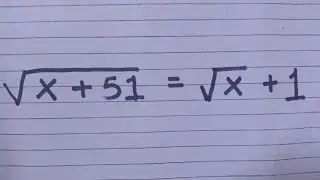 √(x + 51) = √x + 1